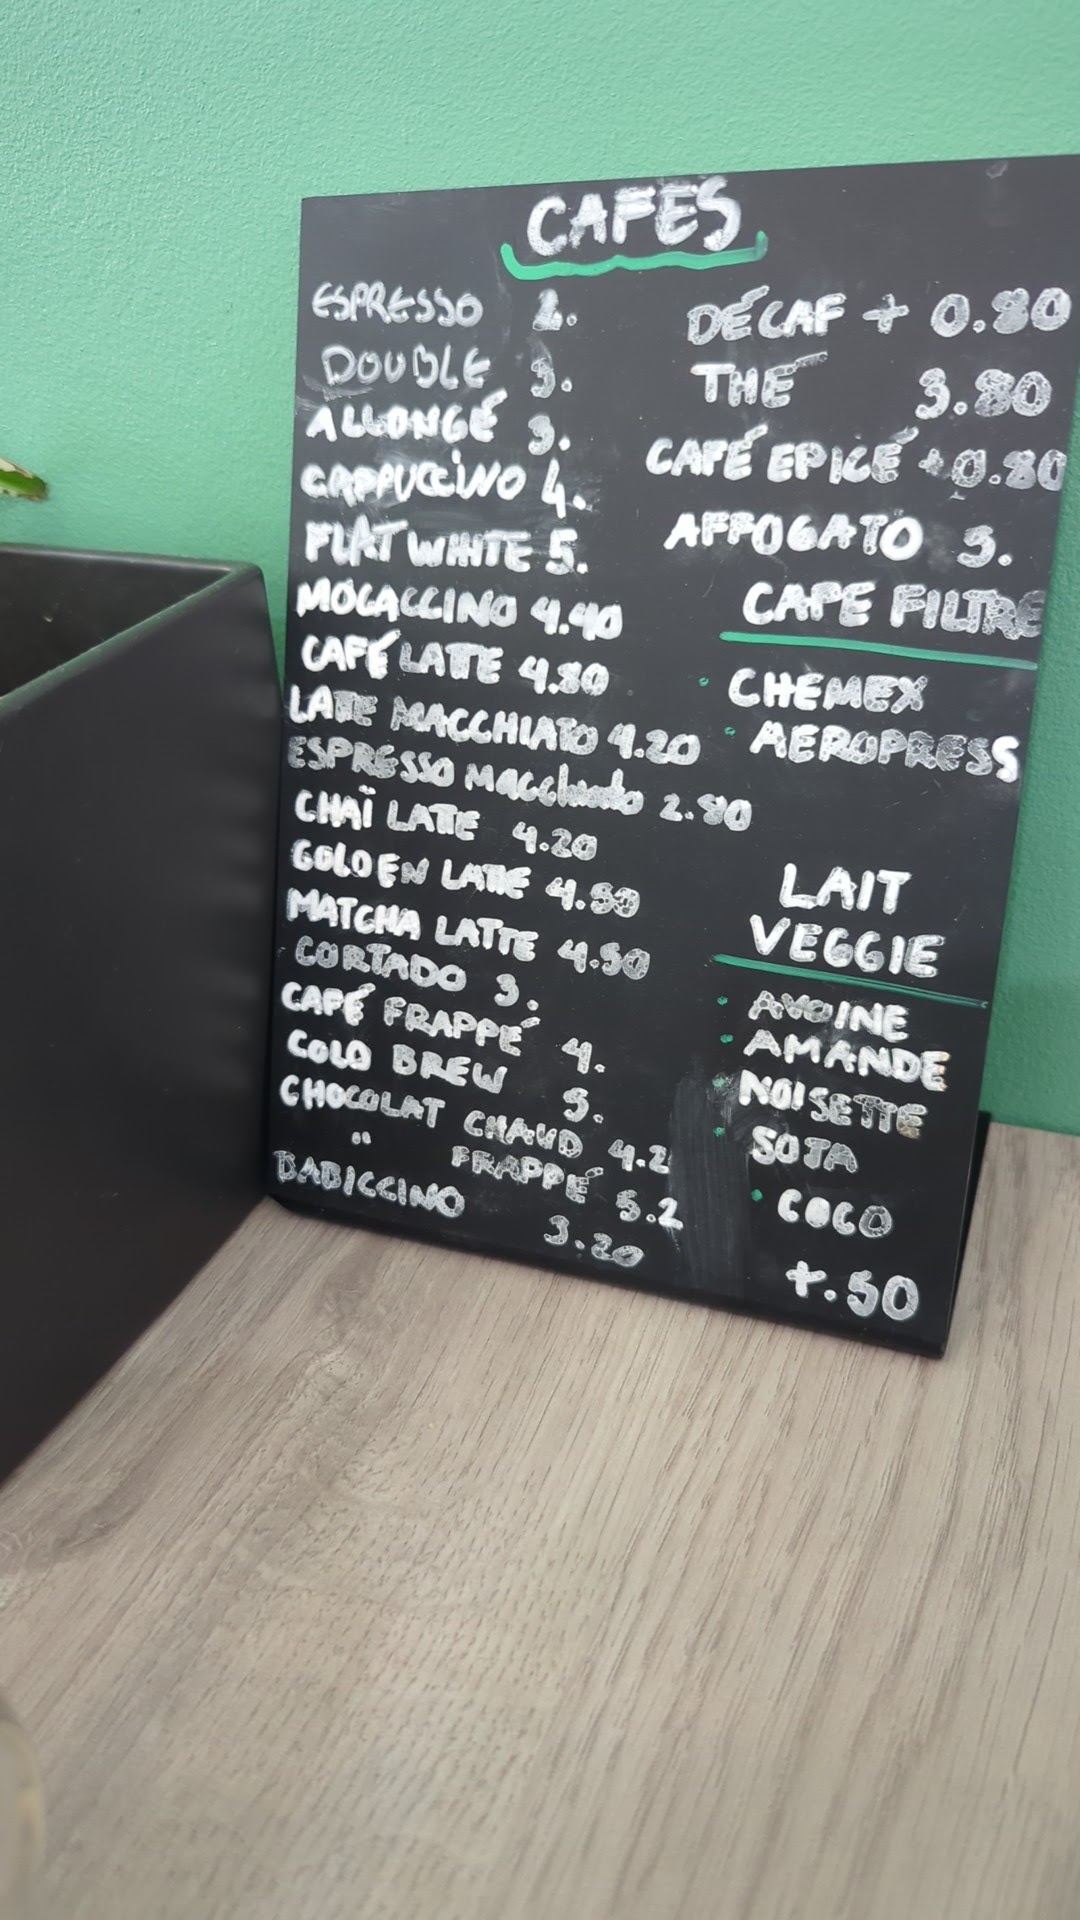 CAFES
ESPRESSO 2.
DOUBLE 3.
ALLONGÉ 3.
CAPPUCCINO 4.
FLAT WHITE 5.
MOCACCINO 4.40
CAFÉ LATTE 4.80
LATTE MACCHIATO 4.20
ESPRESSO MACChiato 2.80
CHAÏ LATTE 4.20
GOLDEN LATTE 4.50
MATCHA LATTE 4.50
CORTADO 3.
CAFÉ FRAPPÉ 4.
COLD BREW 5.
CHOCOLAT CHAUD 4.2
" FRAPPÉ 5.2
BABICCINO 3.20
DÉCAF + 0.80
THÉ 3.80
CAFÉ EPICÉ +0.80
AFFOGATO 5.
CAFE FILTRE
• CHEMEX
• AEROPRESS
LAIT
VEGGIE
• AVOINE
• AMANDE
• NOISETTE
• SOJA
• COCO
+.50